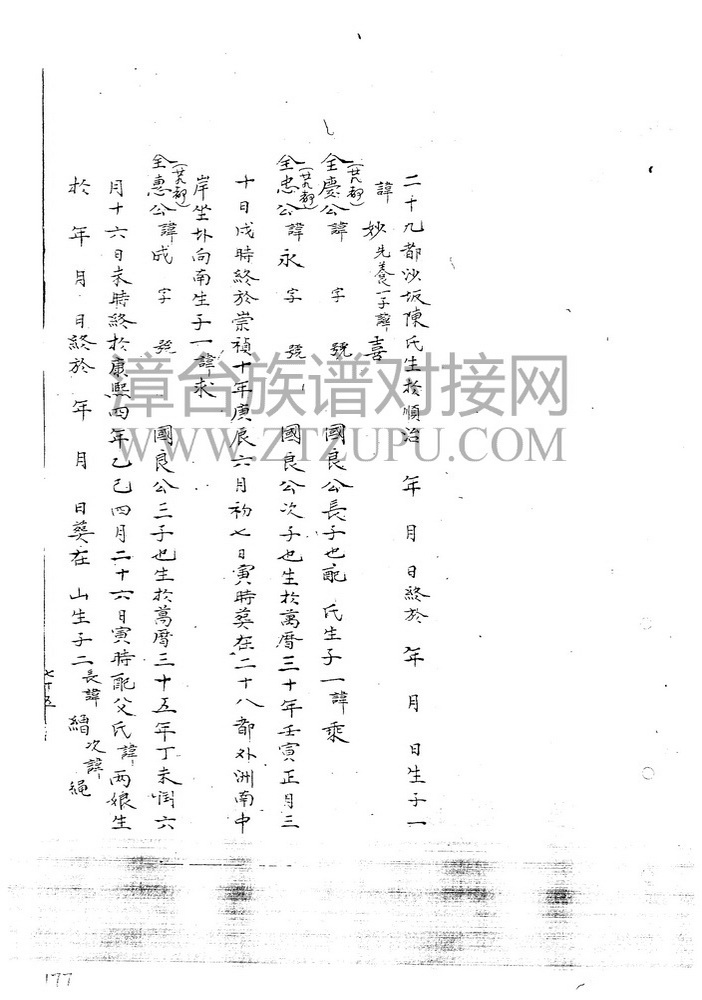 二十九都沙坂陳氏生於順治 年 月 日終於 年 月 日生子一
諱 妙先養一子諱喜
全慶公(廿九都)諱 字 號 國良公長子也配 氏生子一諱乘
全忠公(廿九都)諱永 字 號 國良公次子也生於萬曆三十年壬寅正月三
十日戌時終於崇禎十年庚辰六月初七日寅時葬在二十八都外洲南中
岸坐圤向南生子一諱求
全惠公(廿九都)諱成 字 號 國良公三子也生於萬曆三十五年丁未閏六
月十六日未時終於康熙四年乙巳四月二十六日寅時配父氏諱兩娘生
於 年 月 日終於 年 月 日葬在 山生子二長諱繒次諱繩
七十五
177
漳台族谱对接网
WWW.ZTZUPU.COM